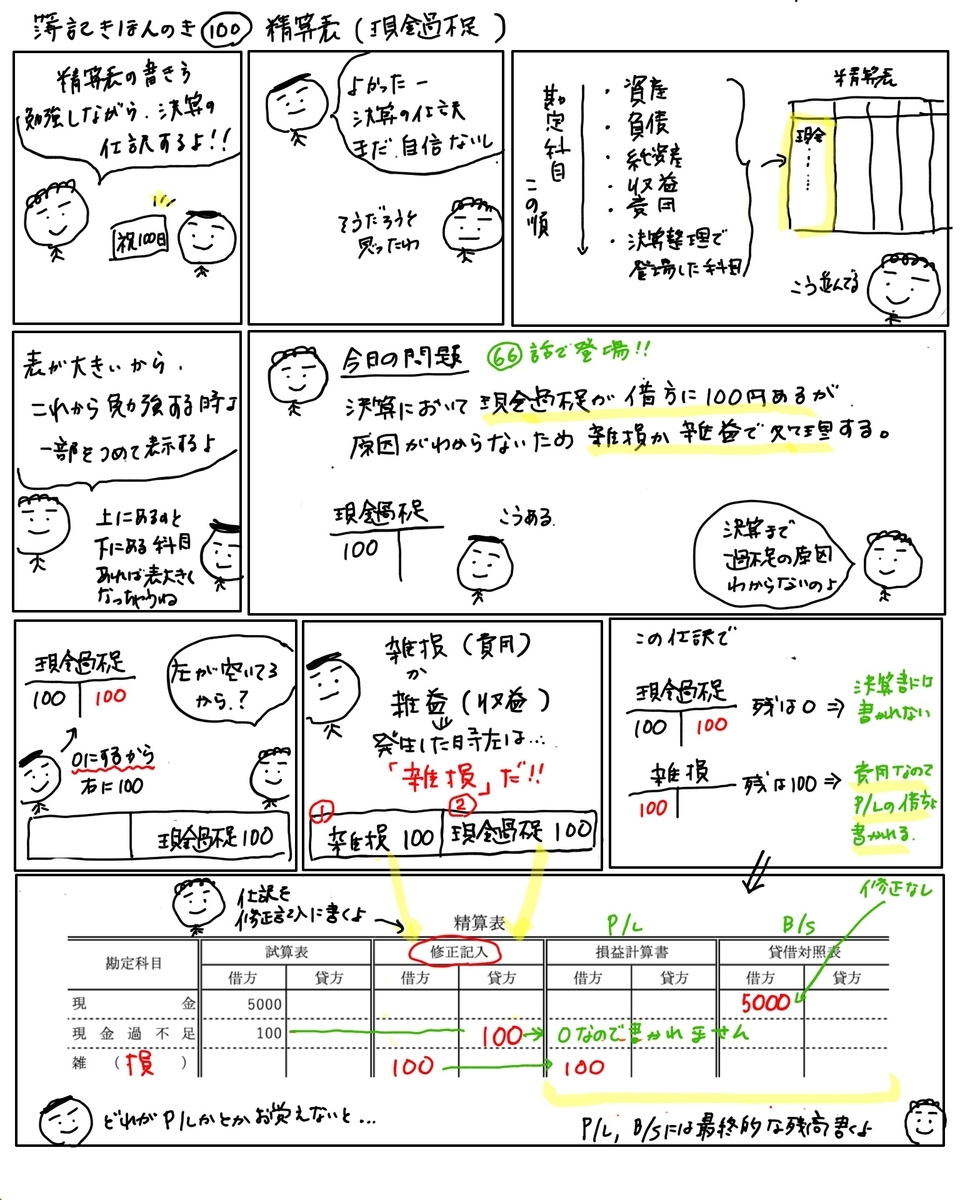 簿記きほんのき 100 精算表(現金過不足)
精算表の書き方
勉強しながら、決算の
仕訳するよ!!
祝100日
よかったー
決算の仕訳
まだ自信ないし
そうだろうと
思ったわ
勘定科目
この順
・資産
・負債
・純資産
・収益
・費用
・決算整理で
登場した科目
精算表
現金
こう並んでる
表が大きいから、
これから勉強する時は
一部をつめて表示するよ
上にあるのと
下にある科目
あれば表大きく
なっちゃうね
今日の問題 66 話で登場!!
決算において 現金過不足が 借方に100円あるが
原因がわからないため 雑損か雑益で処理する。
現金過不足
100
こうある.
決算まで
過不足の原因
わからないのよ
現金過不足
100 100
左が空いてる
から.?
0にするから
右に100
現金過不足 100
雑損(費用)
か
雑益(収益)
発生した時左は…
「雑損」だ!!
① ②
雑損 100 現金過不足 100
この仕訳で
現金過不足
100 100
残は0 ⇒ 決算書には
書かれない
雑損
100
残は100 ⇒ 費用なので
P/Lの借方に
書かれる.
仕訳を
修正記入に書くよ
修正なし
精算表 P/L B/S
勘定科目 試算表 修正記入 損益計算書 貸借対照表
借方 貸方 借方 貸方 借方 貸方 借方 貸方
現金 5000 5000
現金過不足 100 100 0なので書かれません
雑(損) 100 100
どれがP/Lかとかお覚えないと…
P/L, B/Sには最終的な残高書くよ